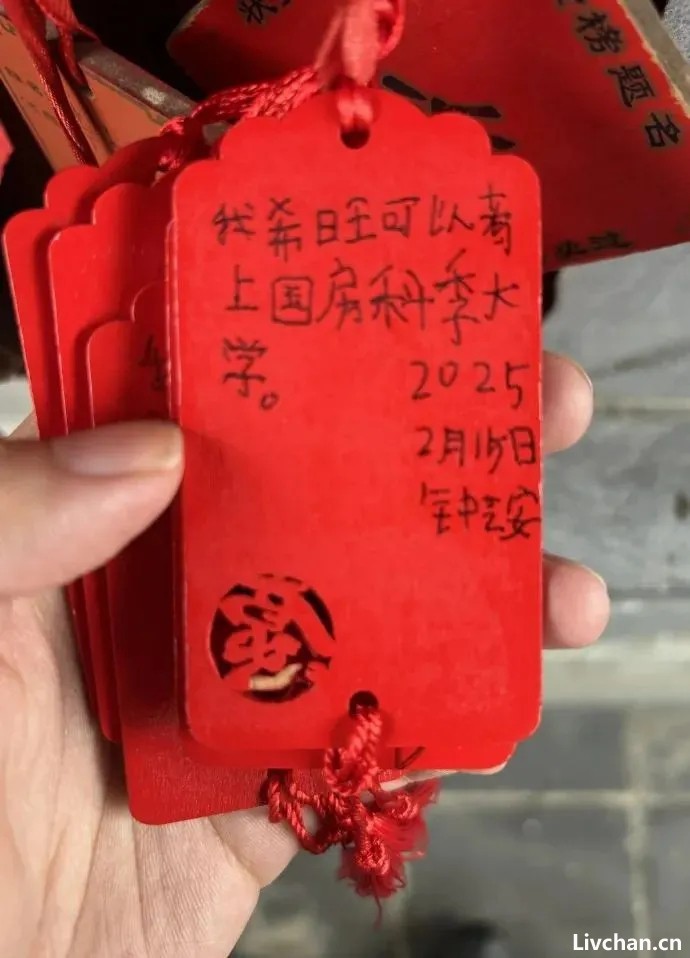 我希旺可以考
上国房科季大
学。
2025
2月15日
钟芸安
金榜题名
Livchan.cn